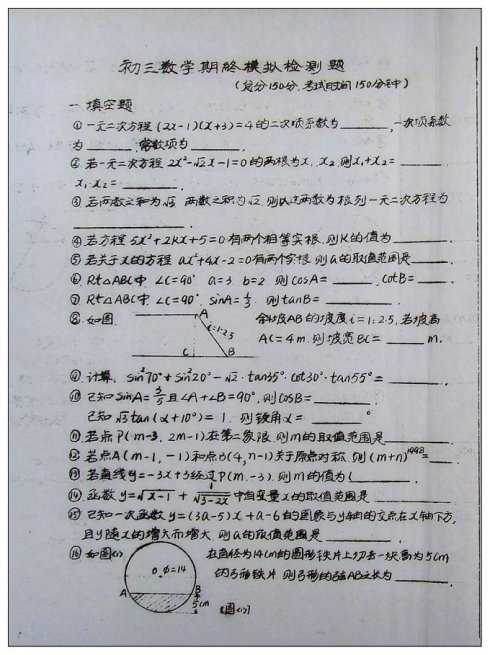 初三数学期终模拟检测题
(总分150分,考试时间150分钟)
一 填空题
① 一元二次方程 (2x-1)(x+3)=4的二次项系数为____,一次项系数
为____,常数项为____.
② 若一元二次方程 2x²-√2x-1=0的两根为x₁ x₂ 则x₁+x₂=____.
x₁·x₂=____.
③ 若两数之和为√5 两数之积为√2 则以这两数为根列一元二次方程为
④ 若方程 5x²+2kx+5=0有两个相等实根,则k的值为____.
⑤ 若关于x的方程 ax²+4x-2=0有两个实根 则a的取值范围是____.
⑥ Rt△ABC中 ∠C=90° a=3 b=2 则cosA=____, cotB=____.
⑦ Rt△ABC中 ∠C=90°, sinA=⅓ 则tanB=____.
⑧ 如图 斜坡AB的坡度i=1:2.5,若坡高
AC=4m 则坡宽BC=____m.
A
i=1:2.5
C
B
⑨ 计算, sin²70°+sin²20°-√2·tan35°·cot30°·tan55°=____.
⑩ 已知sinA=3/5且∠A+∠B=90°,则cosB=____.
已知√3tan(α+10°)=1, 则锐角α=____°
⑪ 若点P(m-3, 2m-1)在第二象限 则m的取值范围是____
⑫ 若点A(m-1,-1)和点B(4,n-1)关于原点对称 则(m+n)¹⁹⁹⁸=____.
⑬ 若直线y=-3x+3经过P(m,-3),则m的值为(____.
⑭ 函数y=√x-1 + 1/√3-2x 中自变量x的取值范围是____
⑮ 已知一次函数y=(3a-5)x+a-6的图象与y轴的交点在x轴下方,
且y随x的增大而增大 则a的取值范围是____.
⑯ 如图(1) 在直径为14cm的圆形铁片上切去一块高为5cm
的弓形铁片 则弓形的弦AB之长为____.
O φ=14
A
B
5cm
[图(1)]